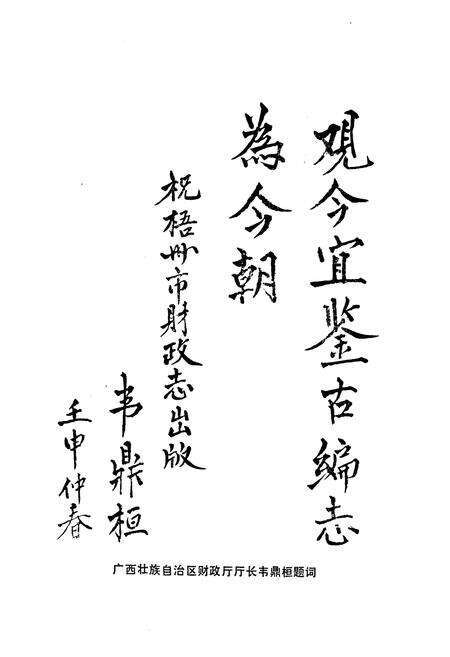 观今宜鉴古编志
為今朝
祝梧州市财政志出版
韦鼎桓
壬申仲春
广西壮族自治区财政厅厅长韦鼎桓题词